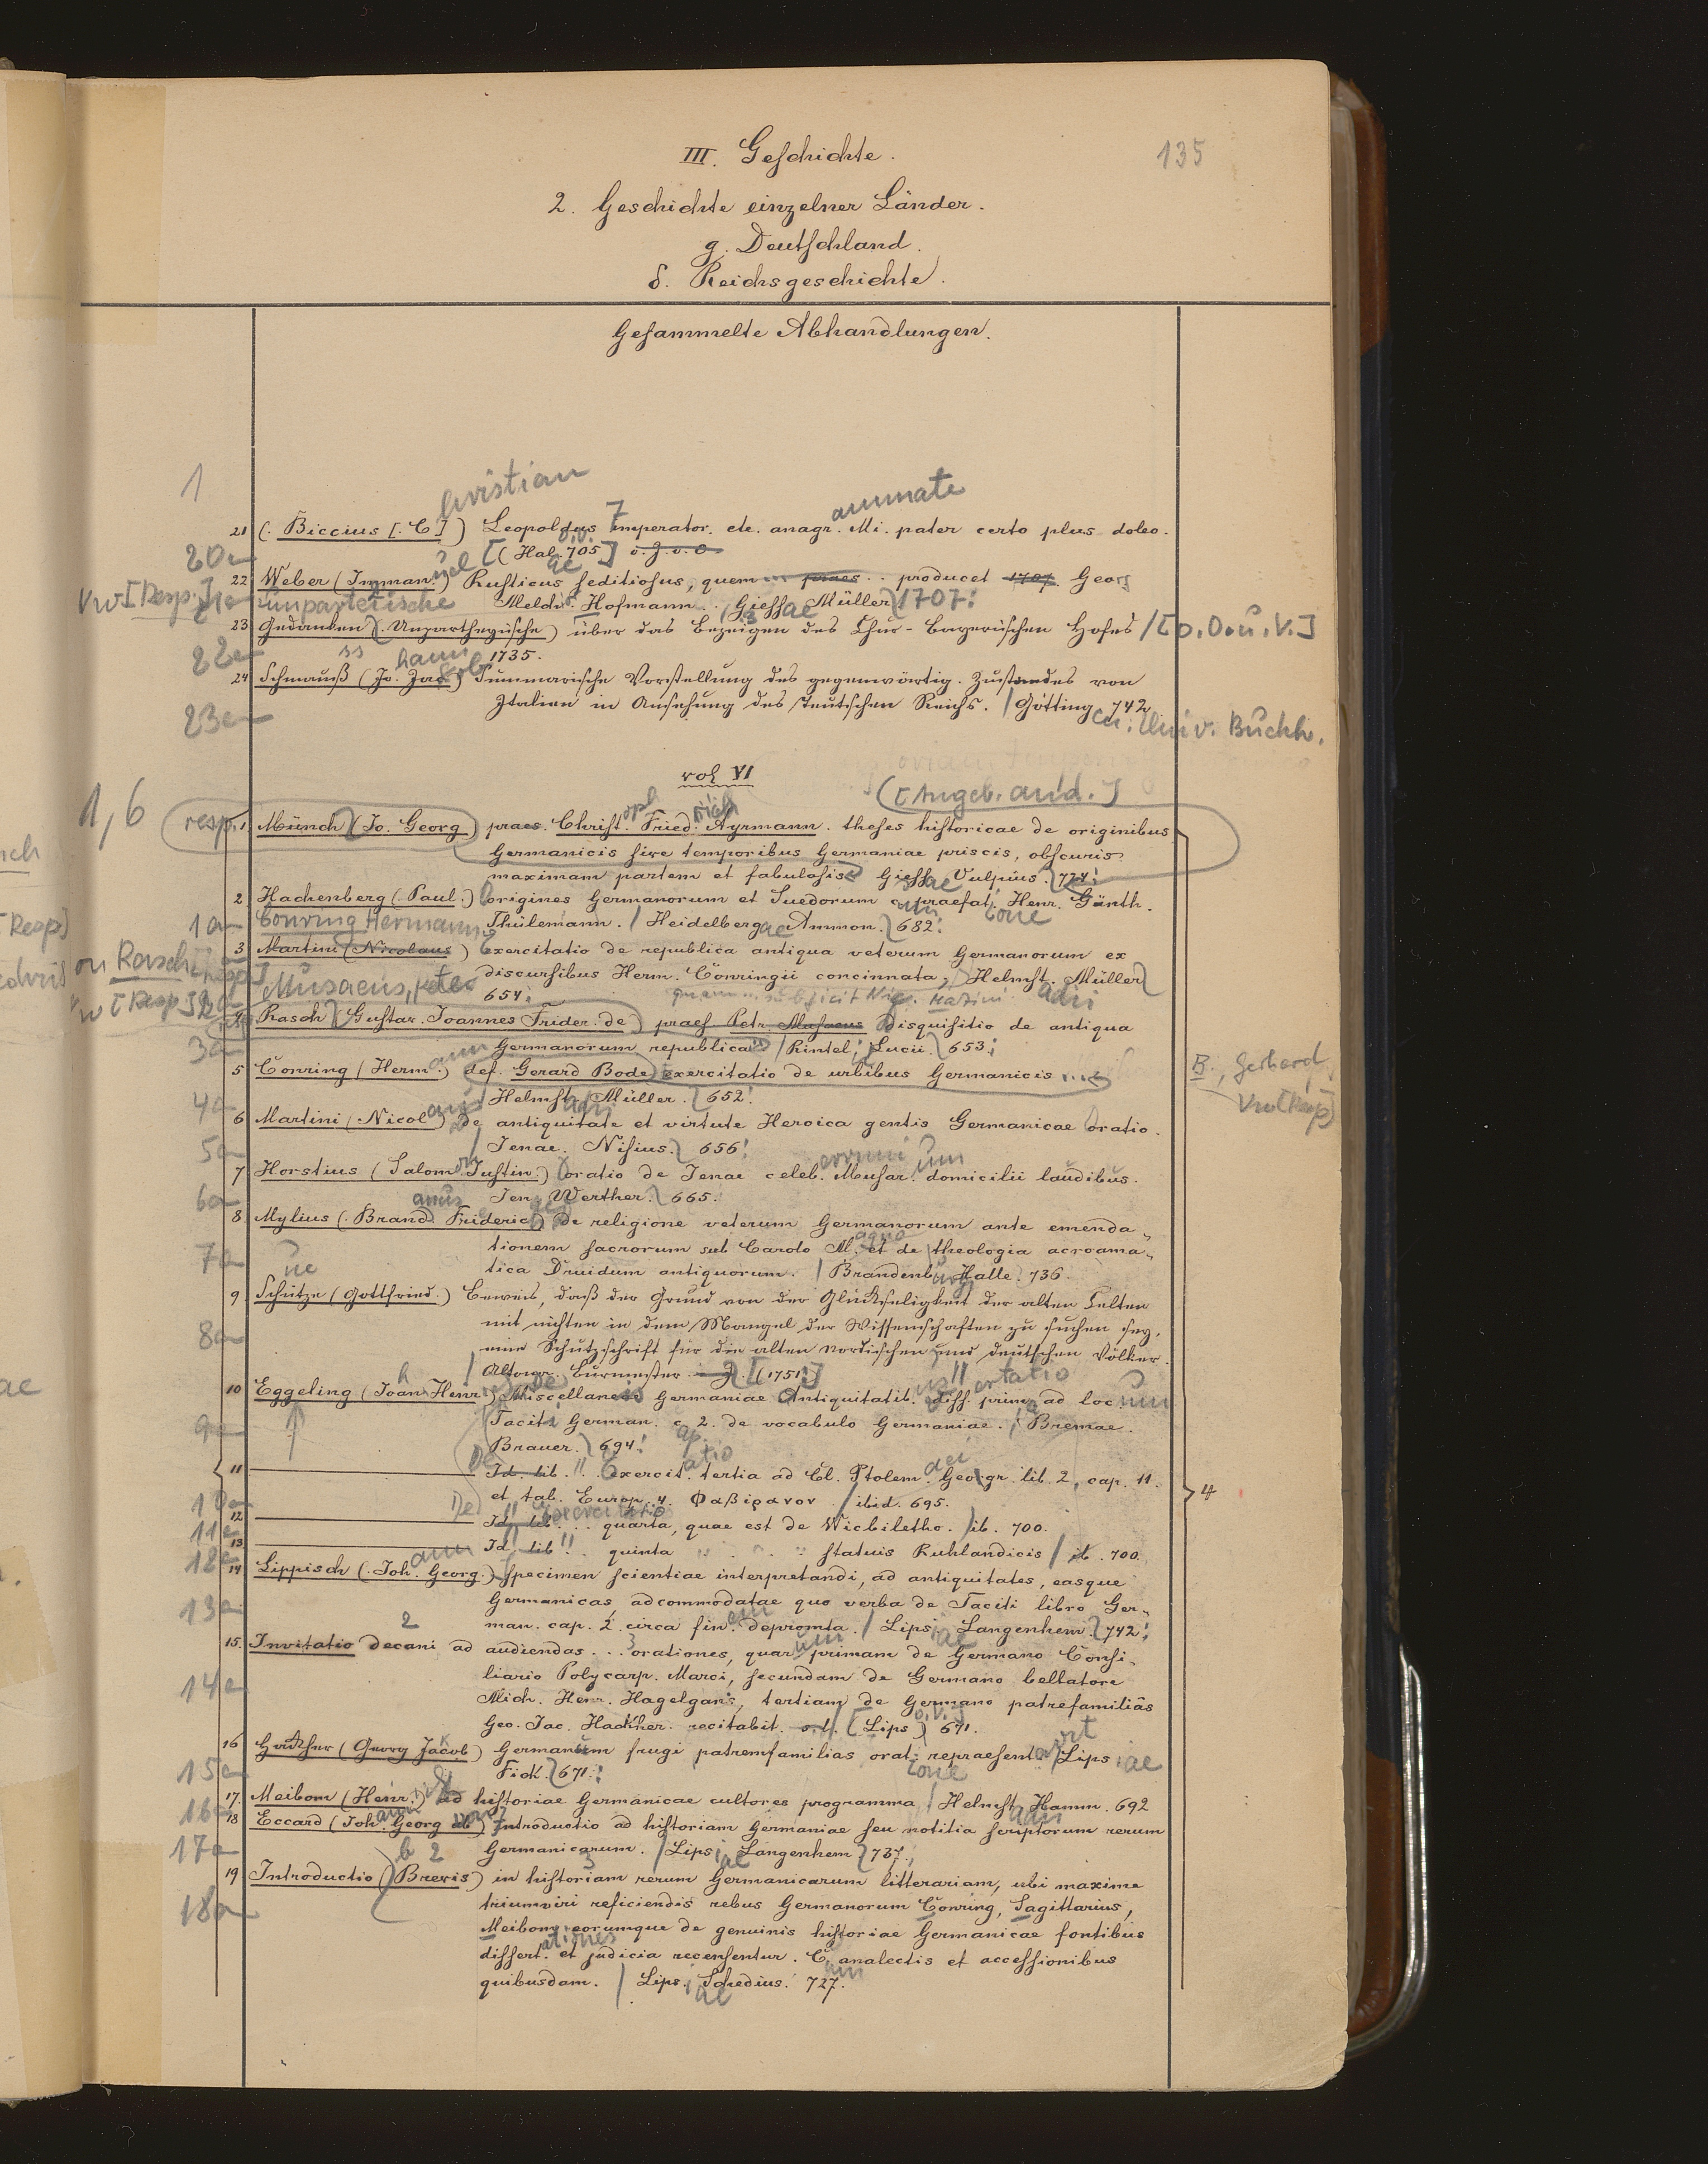 III. Geschichte.
135
2. Geschichte einzelner Länder.
g. Deutschland.
δ. Reichsgeschichte.
Gesammelte Abhandlungen.
1
christian
ammate
21 (. Biccius [. C] ) Leopoldus Imperator. etc. anagr. Mi. pater certo plus doleo.
20a [( Hal. 705 ]
22 Weber (Imman.) uel Rusticus seditiosus, quem ... praes .. producet 1707 Georg
Melch. Hofmann. / Giessae Müller 1707.
unparteiische
23 Gedanken (. Unpartheyische) über das Bezeigen des Chur-Bayerischen Hofes / [o. O. u. V.]
22a 1735.
24 Schmauß (Jo. Jac.) Summarische Vorstellung des gegenwärtig. Zustandes von
Italien in Ansehung des Teutschen Reichs. / Götting 742
23a Univ. Buchh.
vol VI
1,6 ([Angeb. an d.]
resp. 1. Münch (Jo. Georg) praes. Christ. oph Fried. rich Ayrmann. theses historicae de originibus
Germanicis sive temporibus Germaniae priscis, obscuris
maximam partem et fabulosis Giessae Vulpius. 724.
2 Hachenberg (Paul.) origines Germanorum et Suedorum c. praefat. ione Henr. Günth.
1a Conring Hermann Thülemann. / Heidelbergae Ammon. 682.
3 Martini (Nicolaus) Exercitatio de republica antiqua veterum Germanorum ex
discursibus Herm. Conringii concinnata, / Helmst. Müller
Musaeus, Peter 654.
4 Rasch (Gustav. Joannes Frider. de) praes. Petr. Musaeus Disquisitio de antiqua
3a Germanorum republica / Rintel. Lucii. 653.
5 Conring (Herm. ann) def. Gerard Bode exercitatio de urbibus Germanicis ...
B., Gerhard
Vw [Resp]
4a Helmst. Müller. 652.
6 Martini (Nicol) De antiquitate et virtute Heroica gentis Germanicae oratio.
5a / Jenae. Nisius. 656.
7 Horstius (Salom. Justin.) oratio de Jenae celeb. errimi Musar. um domicilii laudibus.
6a Jen. Werther. 665.
8 Mylius (. Brand. anus Frideric) De religione veterum Germanorum ante emenda-
tionem sacrorum sub Carolo M. agno et de theologia acroama-
7a tica Druidum antiquorum. / Brandenb. Halle. 736.
9 Schütze (Gottfried.) Beweis, daß der Grund von der Glückseligkeit der alten Celten
mit nichten in dem Mangel der Wissenschaften zu suchen sey,
8a eine Schutzschrift für die alten nordischen und deutschen Völker.
/ Altona. Burmester [(1751.)]
10 Eggeling (Joan. h Henr.) Miscellaneis Germaniae Antiquitatib. us diss. ertatio prima ad loc. um
Taciti German. c. 2. de vocabulo Germaniae. / Bremae.
9a Brauer. 694.
11 Id. lib. Exercit. atio tertia ad Cl. Ptolem. aei Geogr. lib. 2, cap. 11.
et tab. Europ. 4. Φαβιρανον / ibid. 695.
4
10a
12 Id. lib. ... quarta, quae est de Wicbiletho. / ib. 700.
11a
13 Id. lib. .. quinta statuis Ruhlandicis / ib. 700.
14 Lippisch (Joh. ann Georg.) Specimen scientiae interpretandi, ad antiquitates, easque
13a Germanicas adcommodatae quo verba de Taciti libro Ger-
man. cap. 2 circa fin. em depromta. / Lipsiae Langenhem. 742.
15. Invitatio decani ad audiendas ... orationes, quarum primam de Germano Consi-
liario Polycarp. Marci, secundam de Germano bellatore
14a Mich. Henr. Hagelgans, tertiam de Germano patrefamiliâs
Geo. Jac. Hackher. recitabit. [Lips) o. V.] 671.
16 (Georg Jacob) Germanum frugi patremfamilias orat. ione repraesent avit / Lipsiae
15a Fick. 671.
17. Meibom (Henr.) ad historiae Germanicae cultores programma / Helmst. Hamm. 692
16a
18 Eccard (Joh. ann Georg ab) Introductio ad historiam Germaniae seu notitia scriptorum rerum
17a Germanicarum. / Lipsiae Langenhem 737.
19 Introductio (Brevis) in historiam rerum Germanicarum litterariam, ubi maxime
18a triumviri reficiendis rebus Germanorum Conring, Sagittarius,
Meibom, eorumque de genuinis historiae Germanicae fontibus
dissert. ationes et judicia recensentur. C. um analectis et accessionibus
quibusdam. / Lips. iae Schedius. 727.